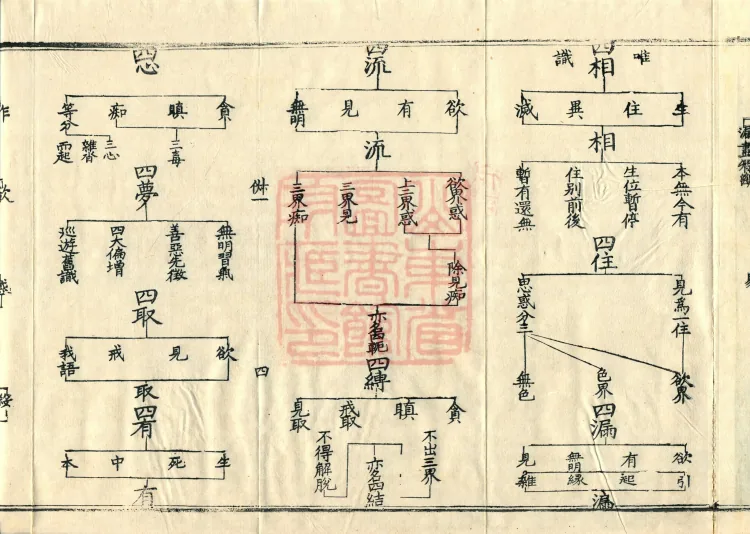 唯
識
四相
生 住 異 滅
相
本無今有
生位暫停
住別前後
暫有還無
四住
見為一住
思惑分三
欲界
色界
無色
四漏
欲 有 無明 見
引 起 緣 雜
漏
四流
欲 有 見 無明
流
欲界惑
上二界惑
三界見
三界痴
除見痴
亦名軛
四縛
貪 瞋 戒取 見取
不出三界
亦名四結
不得解脫
四
貪 瞋 痴 等分
三毒
三心
雜沓
而起
四夢
無明習氣
善惡先徵
四大偏增
巡遊舊識
四取
欲 見 戒 我語
取
四有
生 死 中 本
有
四